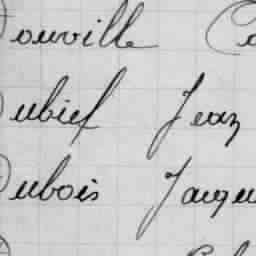 Douville
Dubief Jean
Dubois Jacqu